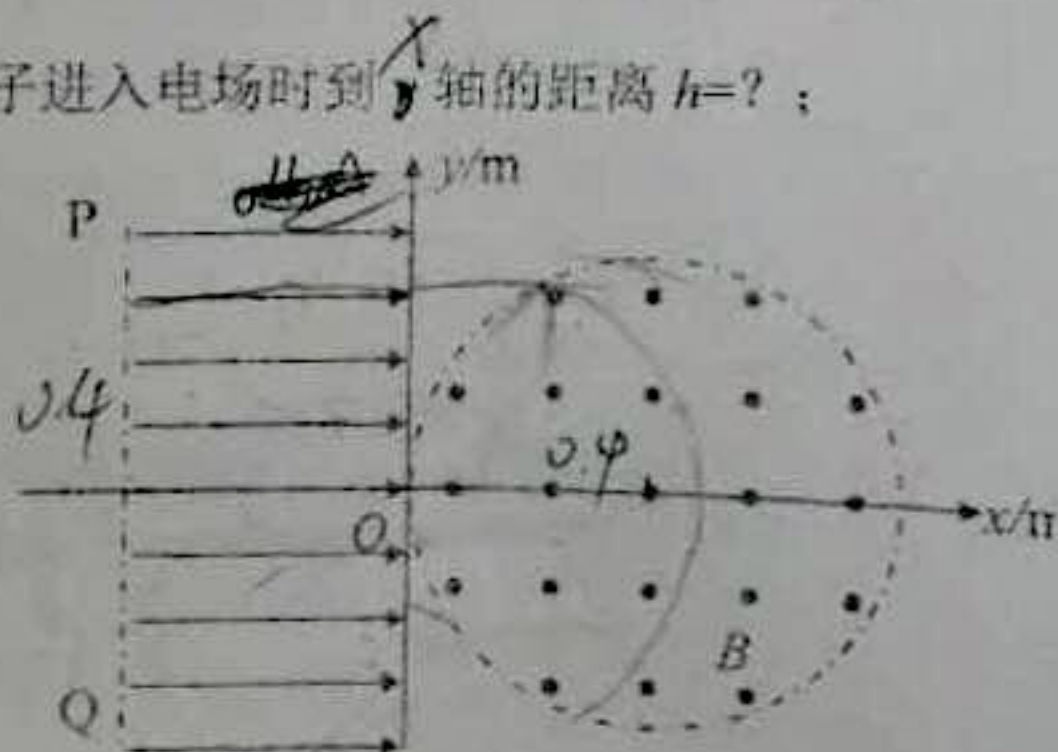 x
子进入电场时到 y 轴的距离 h=? ;
y/m
P
0.4
0.4
O
x/m
B
Q